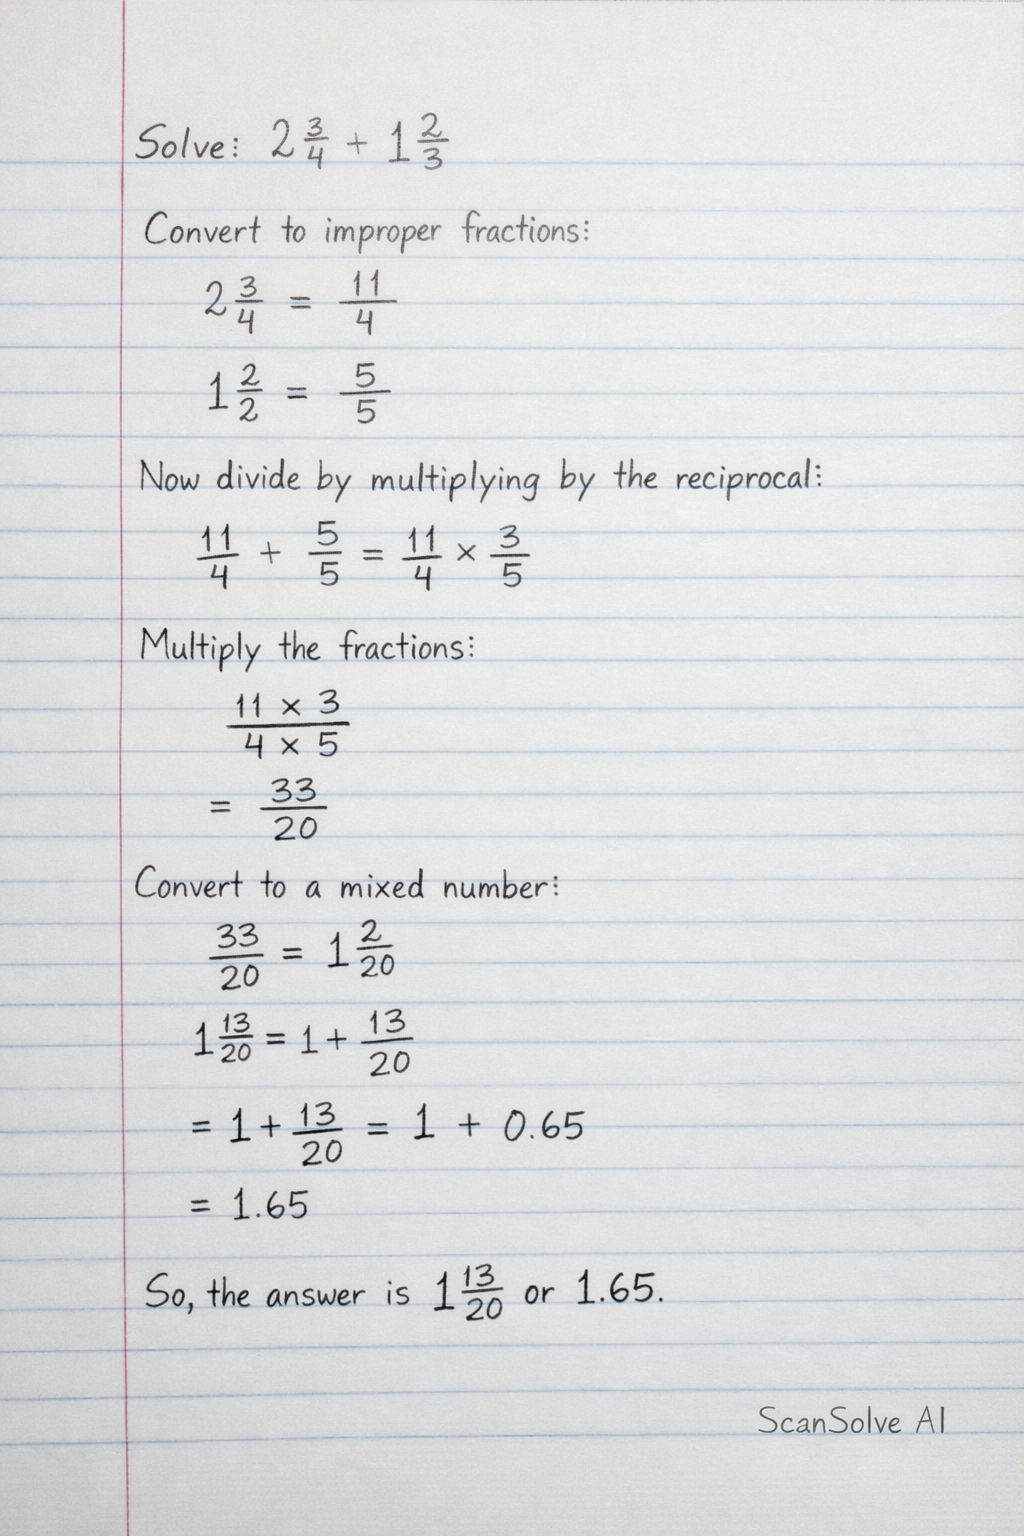 Solve: 2 3/4 + 1 2/3
Convert to improper fractions:
2 3/4 = 11/4
1 2/2 = 5/5
Now divide by multiplying by the reciprocal:
11/4 + 5/5 = 11/4 × 3/5
Multiply the fractions:
11 × 3 / 4 × 5
= 33/20
Convert to a mixed number:
33/20 = 1 2/20
1 13/20 = 1 + 13/20
= 1 + 13/20 = 1 + 0.65
= 1.65
So, the answer is 1 13/20 or 1.65.
ScanSolve AI